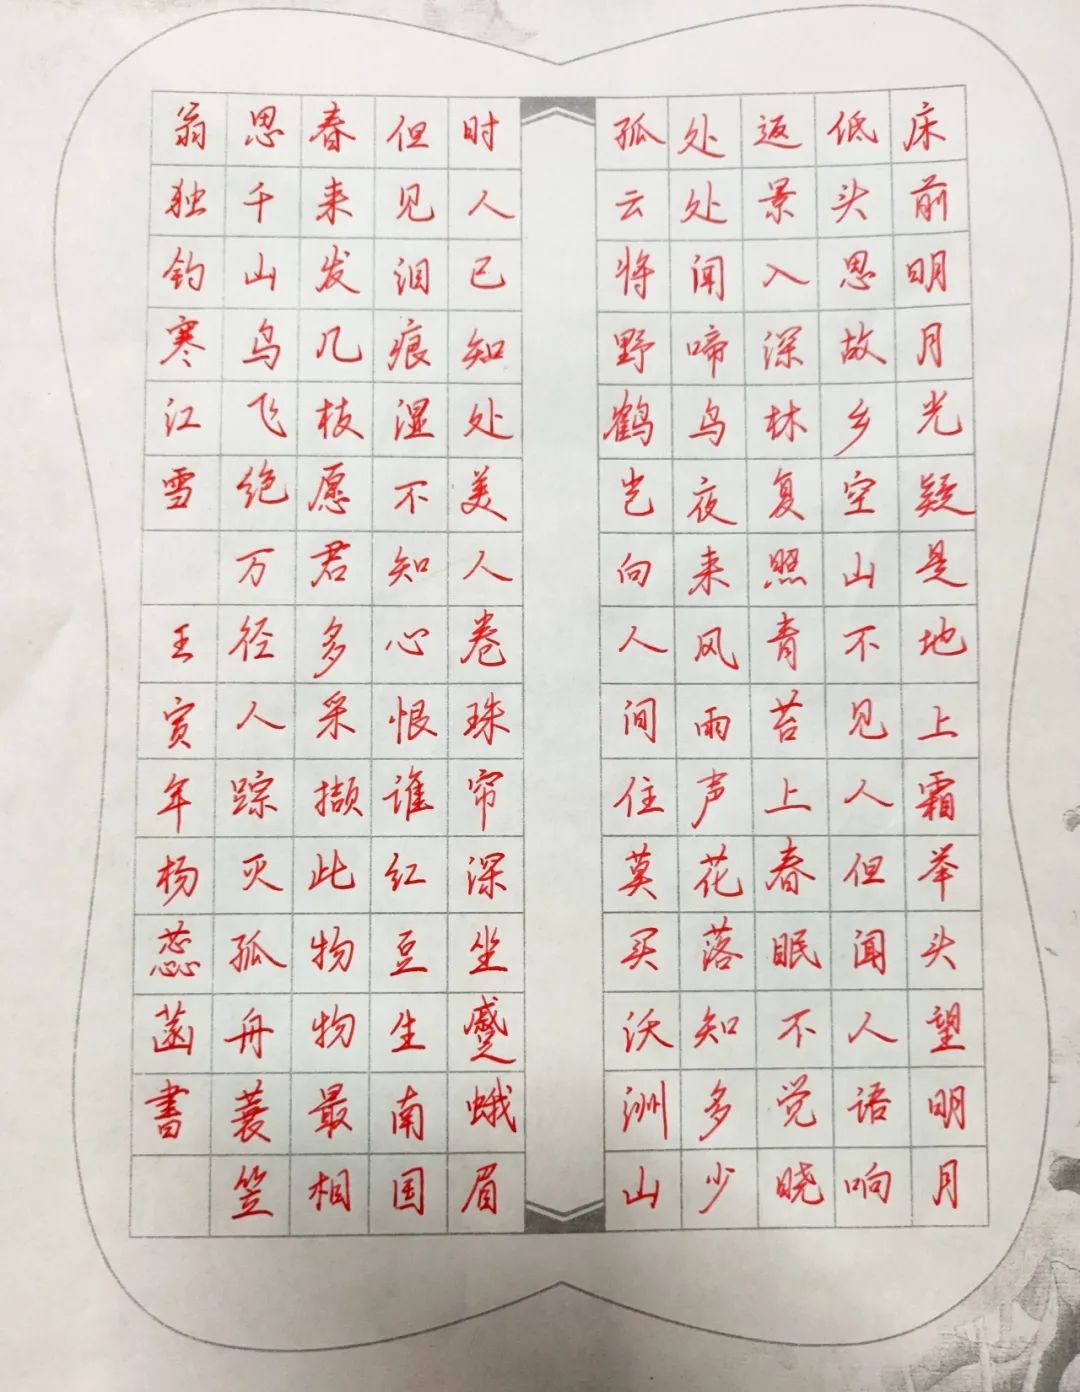 床前明月光疑是地上霜举头望明月
低头思故乡空山不见人但闻人语响
返景入深林复照青苔上春眠不觉晓
处处闻啼鸟夜来风雨声花落知多少
孤云将野鹤岂向人间住莫买沃洲山
时人已知处美人卷珠帘深坐蹙蛾眉
但见泪痕湿不知心恨谁红豆生南国
春来发几枝愿君多采撷此物物最相
思千山鸟飞绝万径人踪灭孤舟蓑笠
翁独钓寒江雪 壬寅年杨蕊菡書